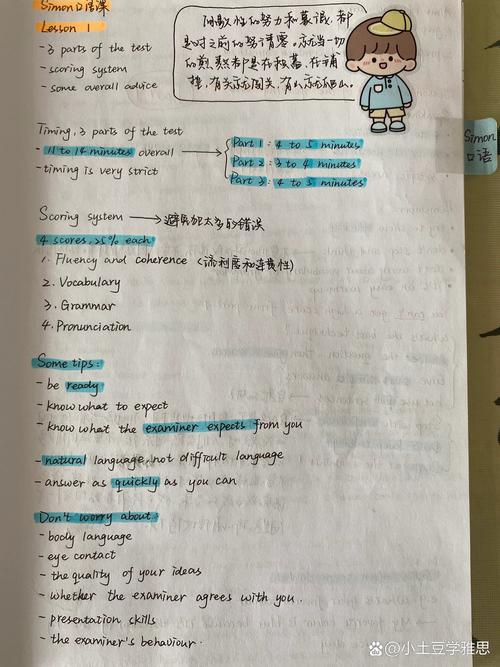 Simon口语课
Lesson 1
- 3 parts of the test
- scoring system
- some overall advice
间歇性的努力和蒙混,都
是对之前的努力清零。
的煎熬都是在积蓄,在
有关就闯关,有山就
Simon
口语
Timing, 3 parts of the test
- 11 to 14 minutes overall → Part 1: 4 to 5 minutes
Part 2: 3 to 4 minutes
Part 3: 4 to 5 minutes
- timing is very strict
Scoring system → 避免犯太多的错误
4 scores, 25% each
1. Fluency and coherence (流利度和连贯性)
2. Vocabulary
3. Grammar
4. Pronunciation
Some tips:
- be ready
- know what to expect
- know what the examiner expects from you
- natural language, not difficult language
- answer as quickly as you can
Don't worry about:
- body language
- eye contact
- the quality of your ideas
- whether the examiner agrees with you.
- presentation skills
- the examiner's behaviour.
小土豆学雅思